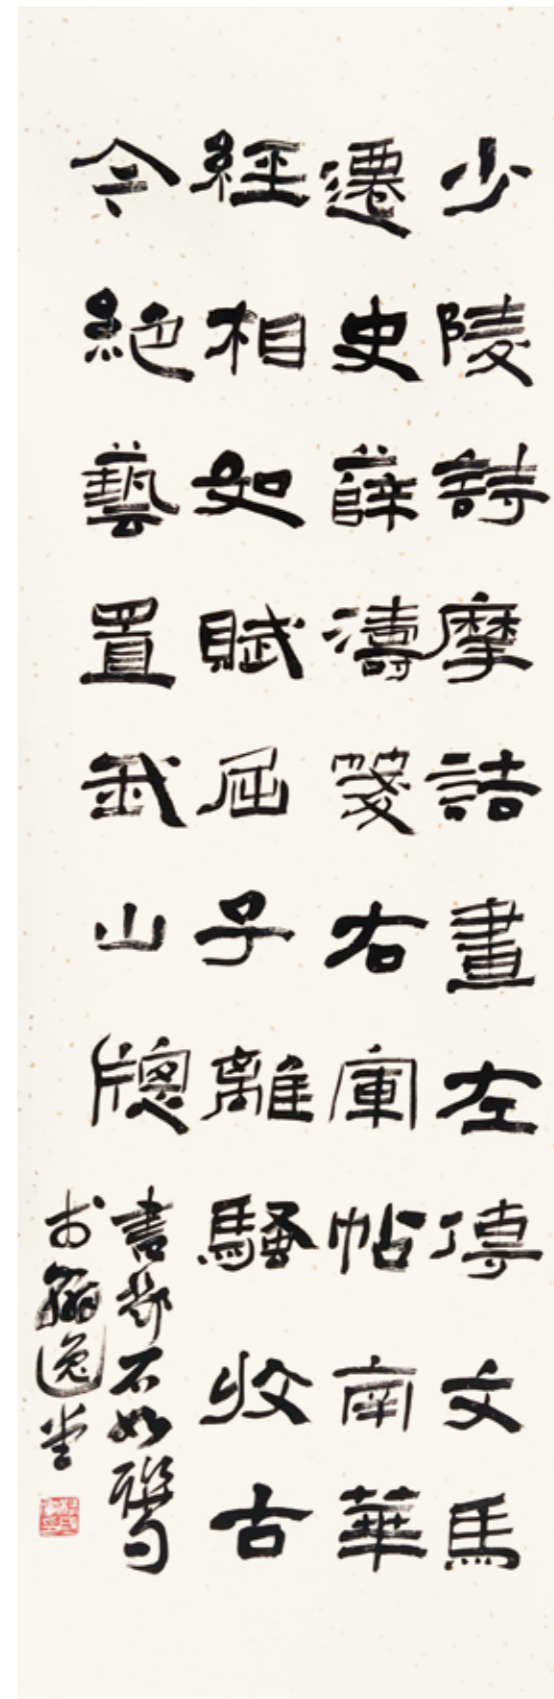 少陵詩摩詰畫左傳文馬
遷史薛濤箋右軍帖南華
經相如賦屈子離騷收古
今絕藝置我山牕
書鄧石如聯句
於翰逸堂